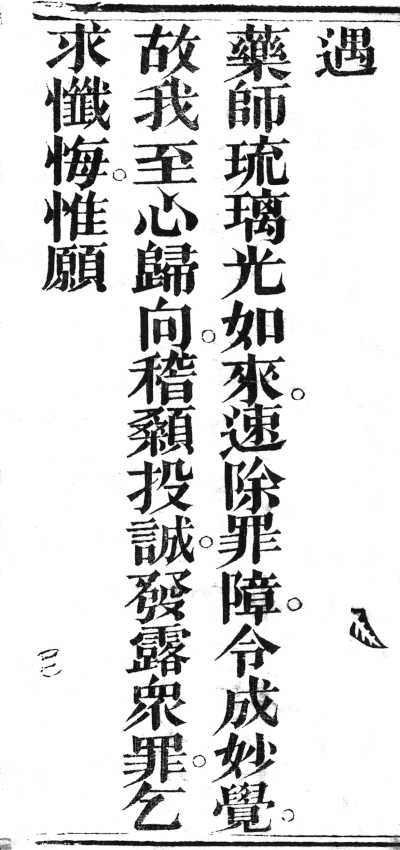 遇
藥師琉璃光如來。速除罪障。令成妙覺。
故我至心歸向。稽顙投誠。發露衆罪。乞
求懺悔。惟願